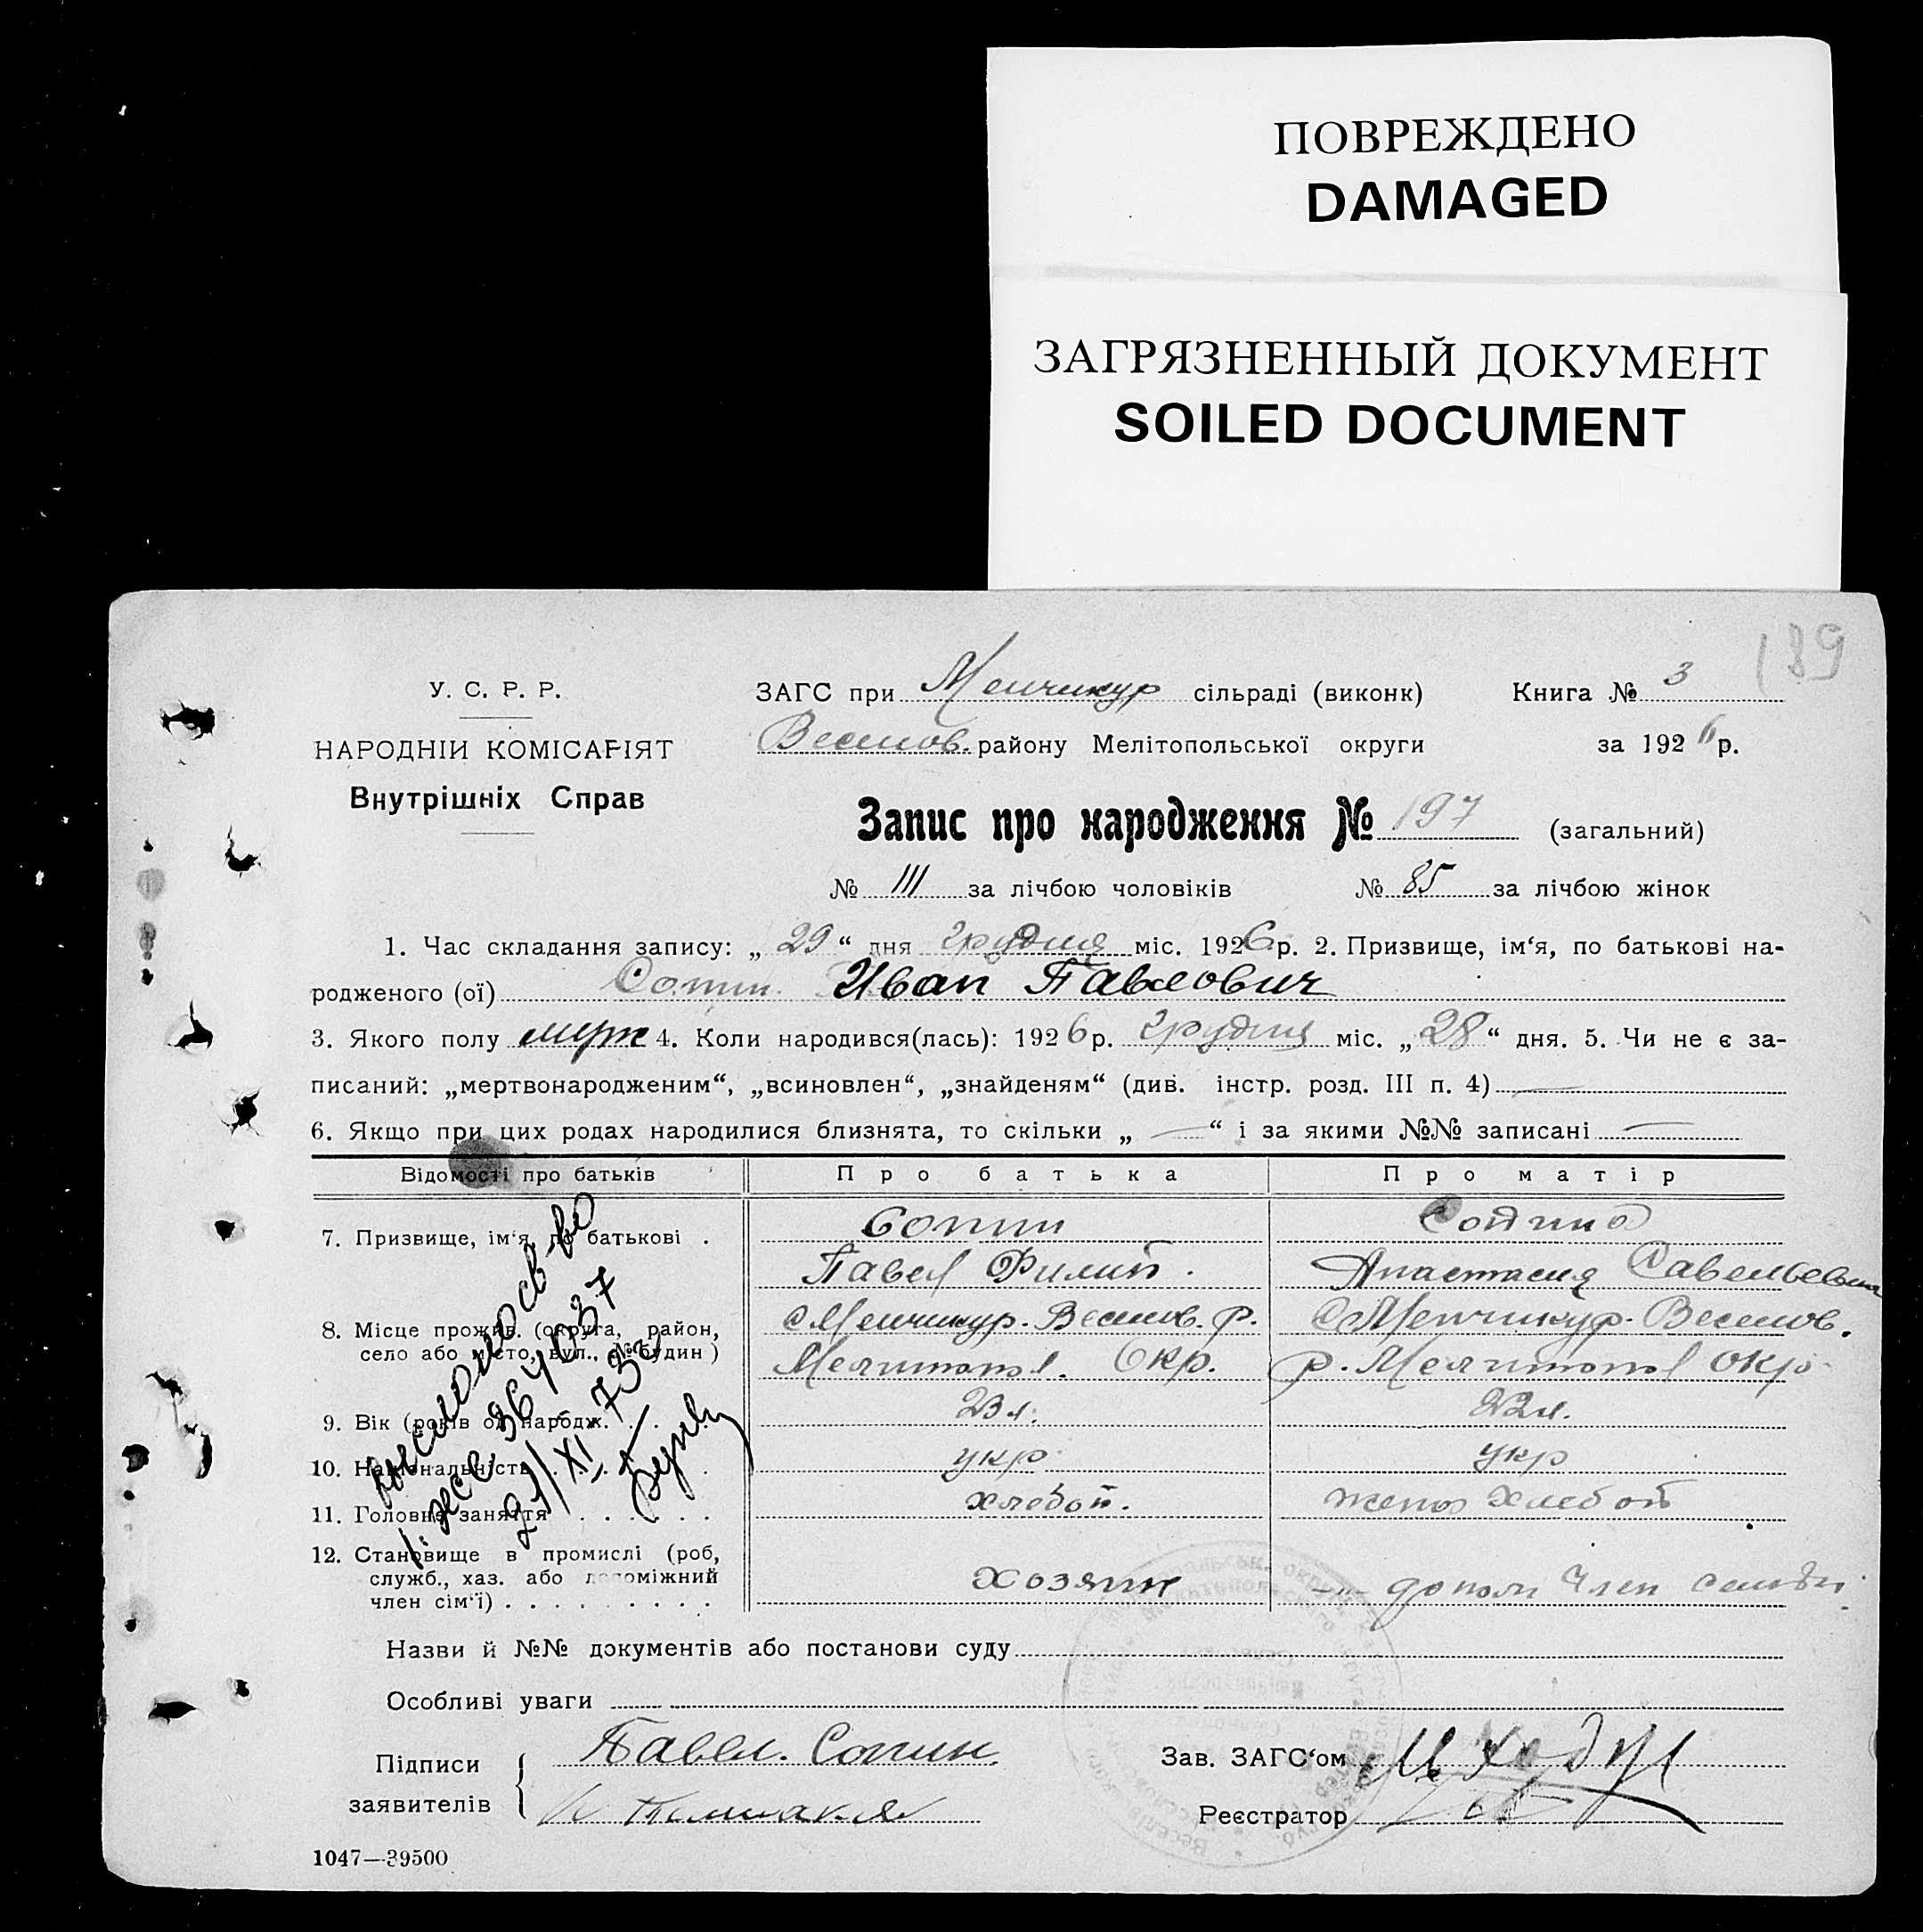 ПОВРЕЖДЕНО
DAMAGED
ЗАГРЯЗНЕННЫЙ ДОКУМЕНТ
SOILED DOCUMENT
189
У. С. Р. Р.
ЗАГС при Менчикур сільраді (виконк) Книга № 3
НАРОДНІЙ КОМІСАРІЯТ
Веселов. району Мелітопольської округи за 1926 р.
Внутрішніх Справ
Запис про народження № 197 (загальний)
№ 111 за лічбою чоловіків № 85 за лічбою жінок
1. Час складання запису: „ 29 “ дня грудня міс. 1926 р. 2. Призвище, ім‘я, по батькові на-
родженого (ої) Сопин Иван Павлович
3. Якого полу муж 4. Коли народився(лась): 1926 р. грудня міс. „ 28 “ дня. 5. Чи не є за-
писаний: „мертвонародженим“, „всиновлен“, „знайденям“ (див. інстр. розд. III п. 4) —
6. Якщо при цих родах народилися близнята, то скільки „ — “ і за якими №№ записані —
Відомості про батьків Про батька Про матір
7. Призвище, ім‘я, по батькові . Сопин Сопина
Павел Филип. Анастасия Савельевна
8. Місце прожив. (округа, район, с Менчикур. Веселов. р. с Менчикур. Веселов.
село або місто, вул., № будин ) Мелитопол. Окр. р. Мелитопол Окр.
9. Вік (років од народж. . . . 23 л. 22 л.
10. Національність . . . укр укр
11. Головне заняття . . . . . . хлебоп. жена хлебоп
12. Становище в промислі (роб,
служб., хаз. або допоміжний хозяин —"— допом член семьи.
член сім‘ї) . . . . . . . . .
364037
Назви й №№ документів або постанови суду
Особливі уваги
Підписи Павел. Сопин Зав. ЗАГС‘ом
заявителів Реєстратор
1047—39500